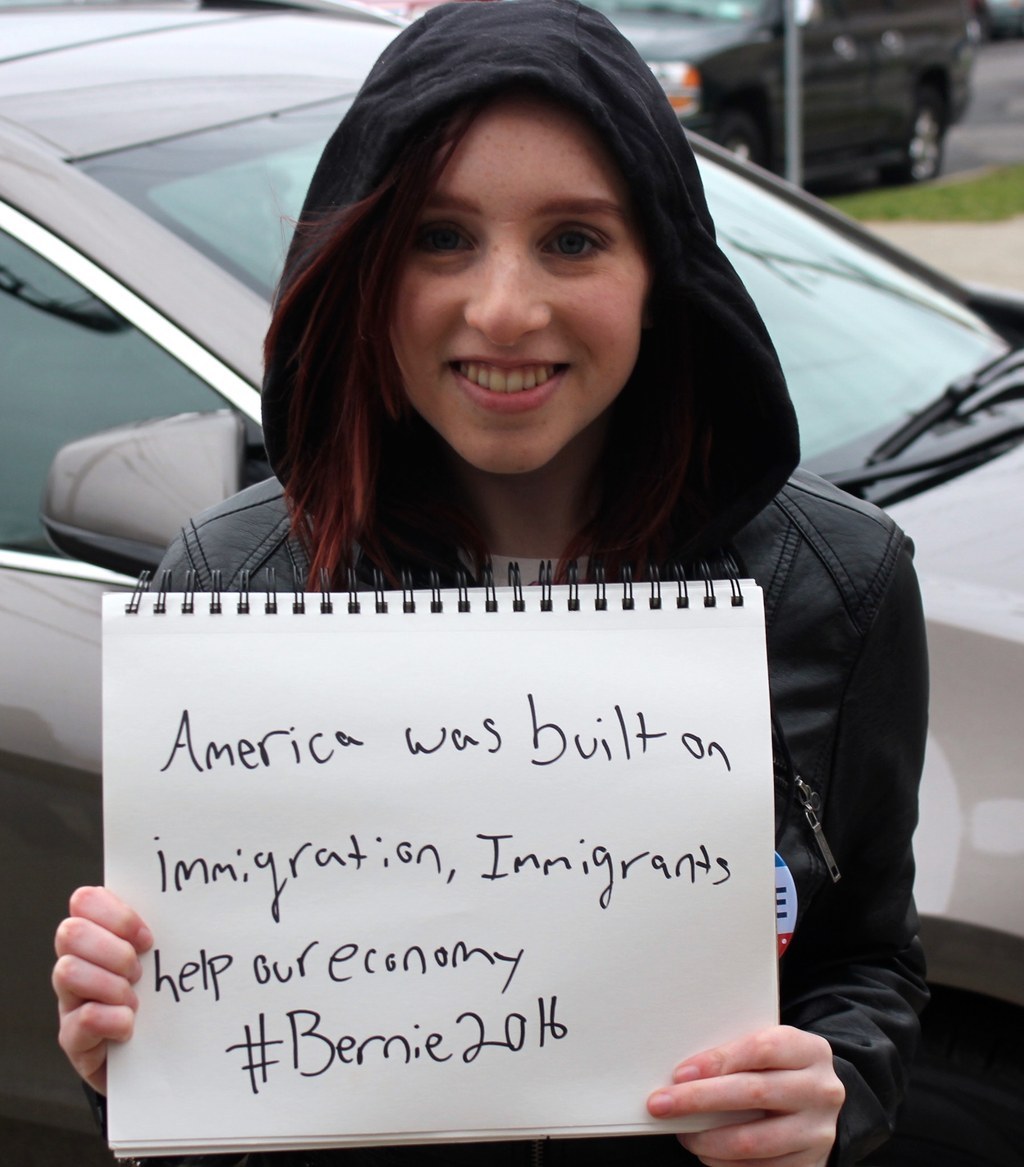 America was built on
immigration, Immigrants
help our economy
#Bernie2016